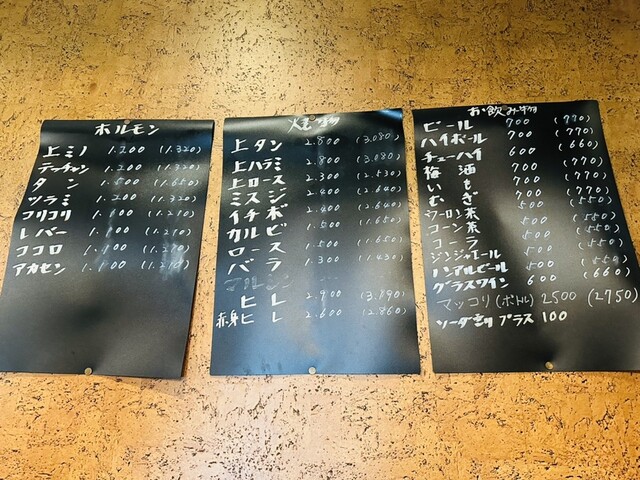 ホルモン
上ミノ 1.200 (1.320)
テッチャン 1.200 (1.320)
タン 1.500 (1.650)
ツラミ 1.200 (1.320)
コリコリ 1.100 (1.210)
レバー 1.100 (1.210)
ココロ 1.100 (1.210)
アカセン 1.100 (1.210)
焼物
上タン 2.800 (3.080)
上ハラミ 2.800 (3.080)
上ロース 2.300 (2.530)
ミスジ 2.400 (2.640)
イチボ 2.400 (2.640)
カルビ 1.500 (1.650)
ロース 1.500 (1.650)
バラ 1.300 (1.430)
ヒレ 2.900 (3.190)
赤身ヒレ 2.600 (2.860)
お飲み物
ビール 700 (770)
ハイボール 700 (770)
チューハイ 600 (660)
梅酒 700 (770)
いも 700 (770)
むぎ 700 (770)
ウーロン茶 500 (550)
コーン茶 500 (550)
コーラ 500 (550)
ジンジャエール 500 (550)
ノンアルビール 500 (550)
グラスワイン 600 (660)
マッコリ(ボトル) 2500 (2750)
ソーダ割 プラス 100